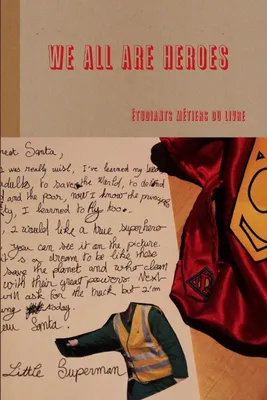 WE ALL ARE HEROES
ÉTUDIANTS MÉTIERS DU LIVRE
Santa,
was really wish, I've learned my
adults, to save the World, to
and the poor, now I know the
I learned to fly too.
I would like a true superhero
You can see it on the picture.
is a dream to be like these
save the planet and who clean
with their great powers. Next
will ask for the truck but I'm
today.
Santa.
Little Superman